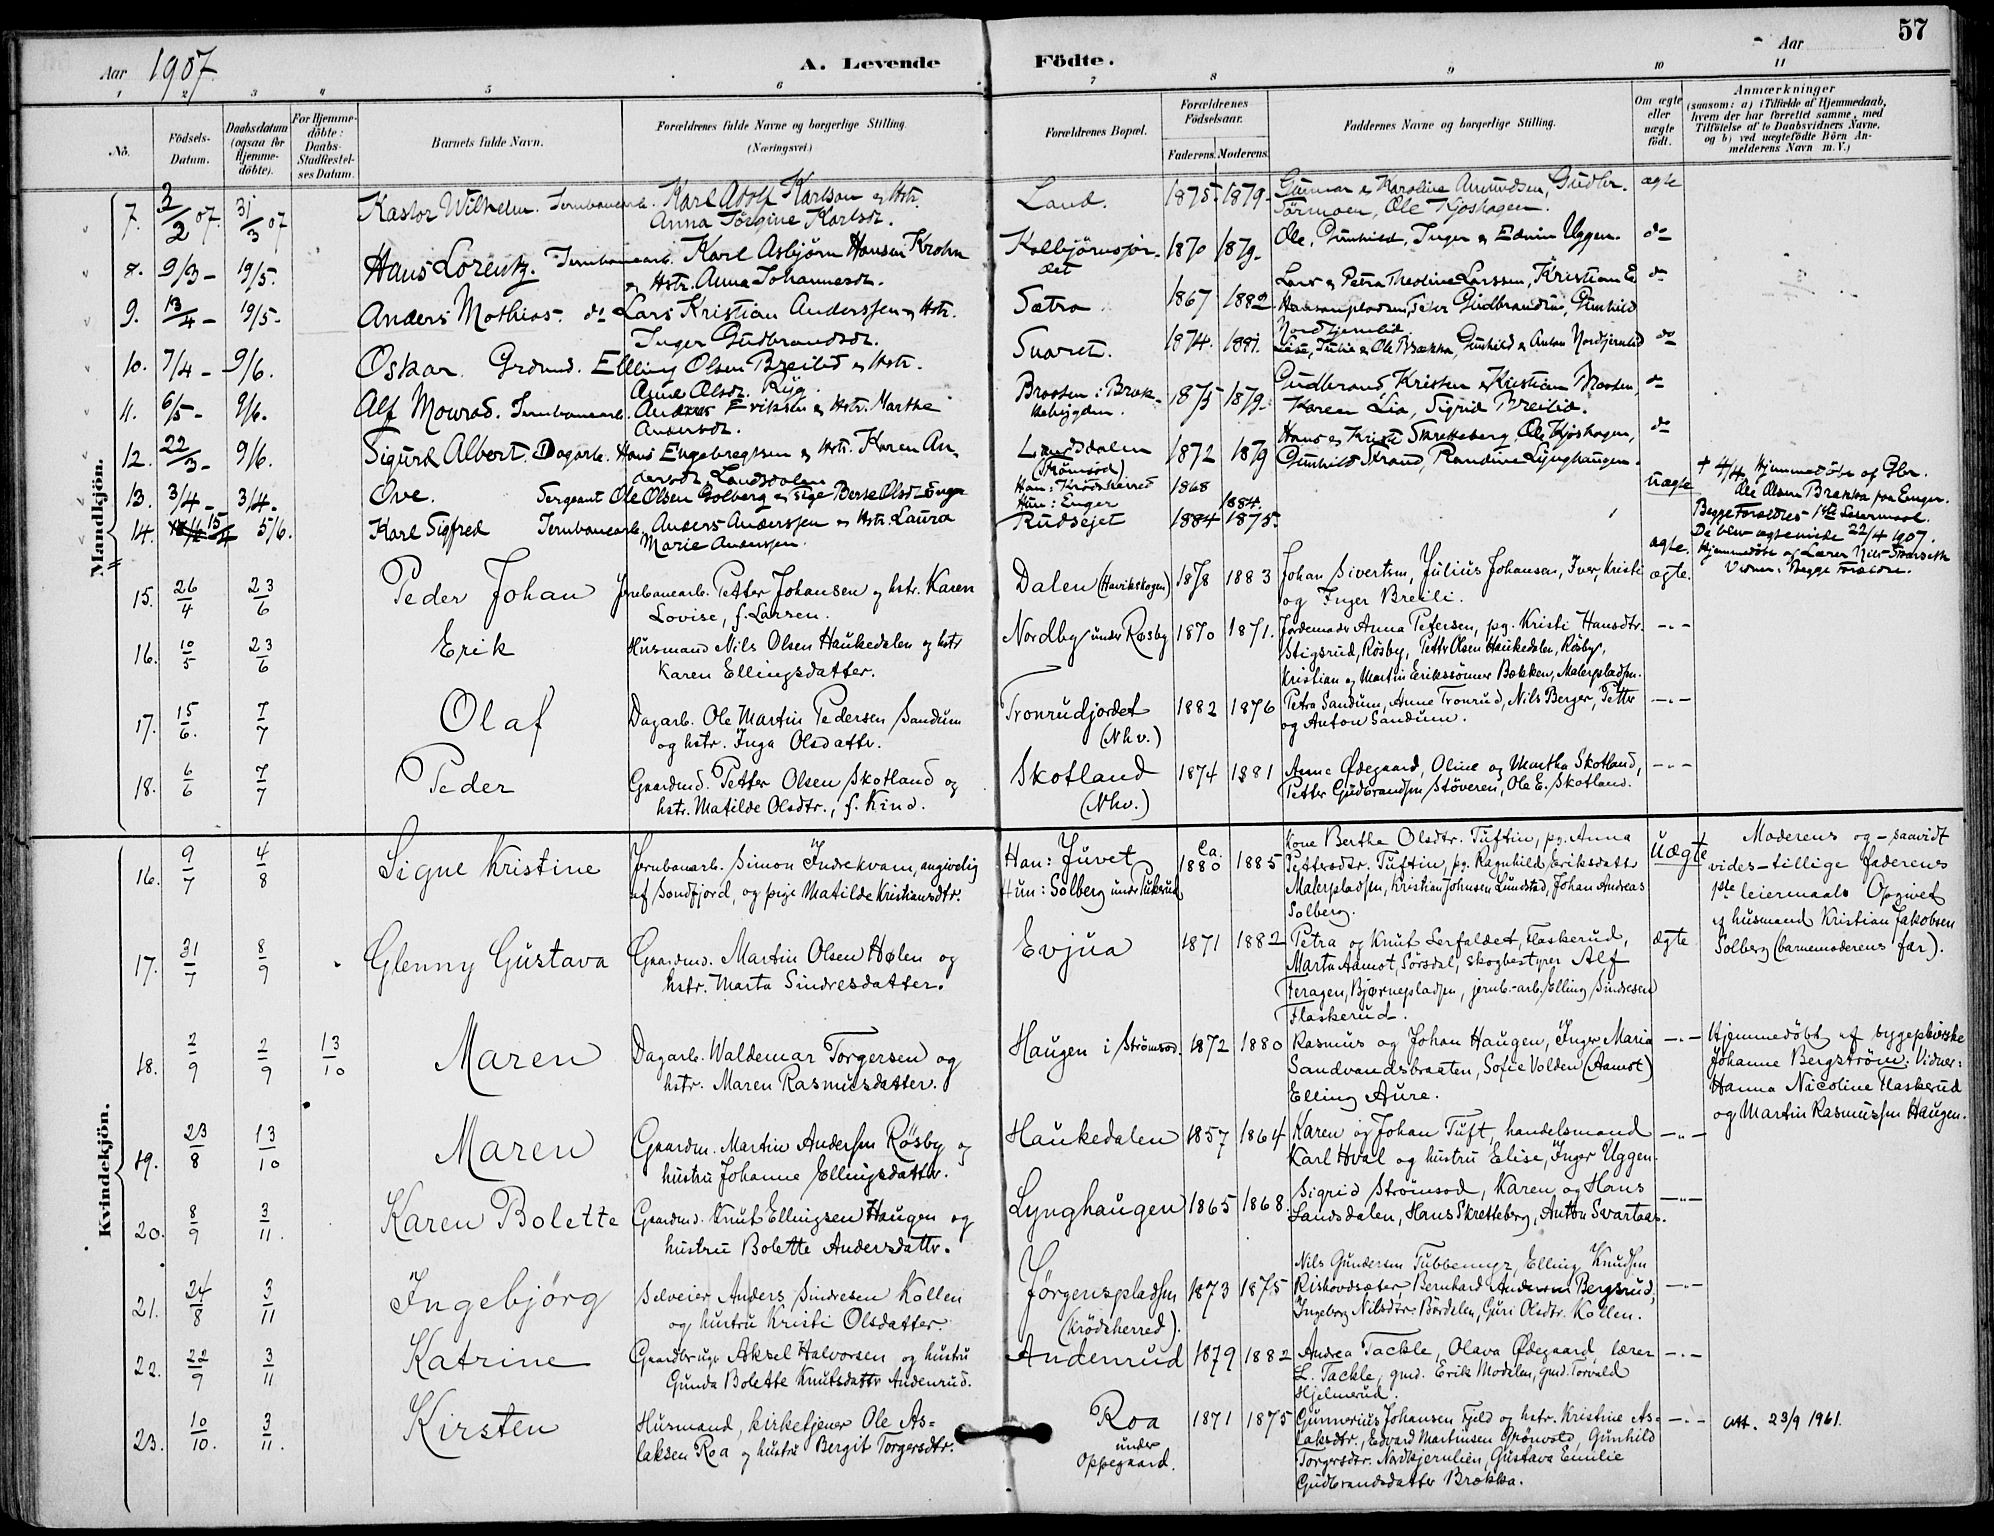 57
Aar 1907.
A. Levende Födte.
Aar
1 2 3 4 5 6 7 8 9 10 11
No.
Födsels-Datum.
Daabsdatum (ogsaa for Hjemme-döbte).
For Hjemme-döbte: Daabs-Stadfæstel-ses Datum.
Barnets fulde Navn.
Forældrenes fulde Navne og borgerlige Stilling. (Næringsvei.)
Forældrenes Bopæl.
Forældrenes Födselsaar.
Faderens. Moderens.
Faddernes Navne og borgerlige Stilling.
Om ægte eller uægte födt.
Anmærkninger
(saasom: a) i Tilfælde af Hjemmedaab,
hvem der har forrettet samme, med
Tilföielse af to Daabsvidners Navne,
og b) ved uægtefödte Börn An-
melderens Navn m. V.)
Mandkjön.
7. 3/2 07. 31/3 07 Kastor Wilhelm. Jernbanearb. Karl Adolf Karlson & Hstr. Land. 1875- 1879- Gunnar & Karoline Amundsen, Gudbr. ægte
Anna Torgine Karlsdr. Tørmoen, Ole Kjøshagen.
8. 9/3- 19/5. Hans Lorentz. Jernbanearb. Karl Asbjørn Hansen Krohn Kolbjørnsjor- 1870 1879- Ole, Gunhild, Inger & Edvin Uggen. do
& Hstr. Anna Johannesdr. det
9. 13/4- 19/5- Anders Mathias. do Lars Kristian Anderssen & Hstr. Sætra 1867 1882 Lars & Petra Theoline Larssen, Kristian E do
Inger Gudbrandsdr. Hansenpladsen, Peter Gudbrandsen, Gunhild
Nordtjernlid
10. 7/4- 9/6. Oskar. Grdmd. Elling Olsen Breilid & Hstr. Svaret. 1874. 1881. Lise, Julie & Ole Brækka, Gunhild & Anton Nordjernlid do
Anne Olsdr. Rug.
11. 6/5- 9/6. Alf Monrad. Jernbanearb. Anders Eriksen & Hstr. Marthe Braaten i Bræk- 1875 1879- Gudbrand, Kristen & Kristian Moen, do
Andersdr. kebygden. Karen Lia, Sigrid Breilid.
12. 22/3- 9/6. Sigurd Albert. Dagarb. Hans Engebregtsen & Hstr. Karen An- Landsdalen 1872 1879 Hans & Kristi Skretteberg, Ole Kjøshagen, do
dersdr. Landsdalen (Strømsod) Gunhild Strand, Randine Lynghaugen.
13. 3/4- 3/4. Ove. Sergeant Ole Olsen Golberg & pige Berte Olsdr. Enger Han: Krødsherred 1868 uægte
Hun: Enger 1884.
† 4/4. Hjemmedøbt af Gbr.
Ole Olsen Brækka paa Enger.
Begge Forældres 1ste Leiermaal.
De blev ægteviede 22/4 1907.
14. 15/4 5/6. Karl Sigfred Jernbanearb. Anders Anderssen & Hstr. Laura Rudsejet 1884 1875. ægte.
Marie Anderssen.
Hjemmedøbt af Lærer Nils Skarseth
Vidner: Begge Forældre.
15. 26/4 23/6 Peder Johan Jernbanearb. Petter Johansen og hstr. Karen Dalen (Havikskogen) 1878 1883 Johan Sivertsen, Julius Johansen, Iver, Kristi ægte.
Lovise, f. Larsen. og Inger Breili.
16. 10/5 23/6 Erik Husmand Nils Olsen Haukedalen og hstr Nordby under Røsby 1870 1871. Jordemoder Anna Petersen, pg. Kristi Hansdtr. -"-
Karen Ellingsdatter. Stigsrud, Røsby, Petter Olsen Haukedalen, Røsby,
Kristian og Martin Erikssønner Bakken, Malerpladsen.
17. 15/6. 7/7 Olaf Dagarb. Ole Martin Pedersen Sandum Tronrudjordet 1882 1876 Petra Sandum, Anne Tronrud, Nils Berger, Petter -"-
og hstr. Inga Olsdattr. (Nhv.) og Anton Sandum.
18. 6/6 7/7 Peder Gaardmd. Petter Olsen Skotland og Skotland 1874 1881 Anne Ødegaard, Oline og Martha Skotland, -"-
hstr. Matilde Olsdtr., f. Kind. (Nhv.) Petter Gudbrandsen Støveren, Ole E. Skotland.
Kvindekjön.
16. 9/7 4/8 Signe Kristine Jernbanearb. Simon Indrekvam, angivelig Han: Juvet Ca. 1880 1885 Kone Berthe Olsdtr. Tuftin, pg. Anna Uægte
af Søndfjord, og pige Matilde Kristiansdtr. Hun: Solberg under Pukerud Pettersdtr. Tuftin, pg. Ragnhild Eriksdattr
Malerpladsen, Kristian Johnsen Lundstad, Johan Andreas
Solberg.
Moderens og - saavidt
vides - tillige faderens
1ste leiermaal. Opgivet
af husmand Kristian Jakobsen
Solberg (barnemoderens far).
17. 31/7 8/9 Glenny Gustava Gaardmd. Martin Olsen Hølen og Evjua 1871 1882 Petra og Knut Serfaldet, Flaskerud, ægte
hstr. Marta Sindresdatter. Marta Aamot, Sørsdal, skogbestyrer Alf
Feragen, Bjørnepladsen, jernb.-arb. Elling Sindresen
Flaskerud.
18. 2/9 2/9 13/10 Maren Dagarb. Waldemar Torgersen og Haugen i Strømsod. 1872 1880 Rasmus og Johan Haugen, Inger Maria -"-
hstr. Maren Rasmusdatter. Sandvandsbraaten, Sofie Volden (Aamot)
Elling Aure.
Hjemmedøbt af bygepleierske
Johanne Bergstrøm. Vidner:
Hanna Nicoline Flaskerud
og Martin Rasmussen Haugen.
19. 23/8 13/10 Maren Gaardm. Martin Andersen Røsby og Haukedalen 1857 1864 Karen og Johan Tuft, handelsmand -"-
hustru Johanne Ellingsdatter. Karl Hval og hustru Elise, Inger Uggen.
20. 8/9 3/11. Karen Bolette Gaardmd. Knut Ellingsen Haugen og Lynghaugen 1865 1868. Sigrid Strømsod, Karen og Hans -"-
hustru Bolette Andersdattr. Landsdalen, Hans Skretteberg, Anton Svartaas.
21. 24/8 3/11 Ingebjörg Selveier Anders Sindresen Kollen Jørgenspladsen 1873 1875 Nils Gundersen Tubbemyr, Elling Knudsen -"-
og hustru Kristi Olsdatter. (Krødsherred). Riskovdsæter, Bernhard Andersen Bergsrud,
Ingeborg Nilsdtr. Bårdelen, Guri Olsdtr. Kollen.
22. 22/9 3/11 Katrine Gaardbruger Aksel Halvorsen og hustru Andenrud 1879 1882 Andrea Tackle, Olava Ødegaard, lærer -"-
Gunda Bolette Knutsdattr Andenrud. L. Tackle, gmd. Erik Modalen, gmd. Torvald
Hjelmerud.
23. 10/10. 3/11. Kirsten Husmand, kirketjener Ole As- Roa 1871 1875 Gunnerius Johansen Fjeld og hstr. Kristine As- -"- att. 23/9 1961.
laksen Roa og hustru Bergit Torgersdtr. under Oppegaard. laksdtr., Edvard Martinsen Grønvold, Gunhild
Torgersdtr. Nordkjernlien, Gustava Emilie
Gudbrandsdatter Brækka.